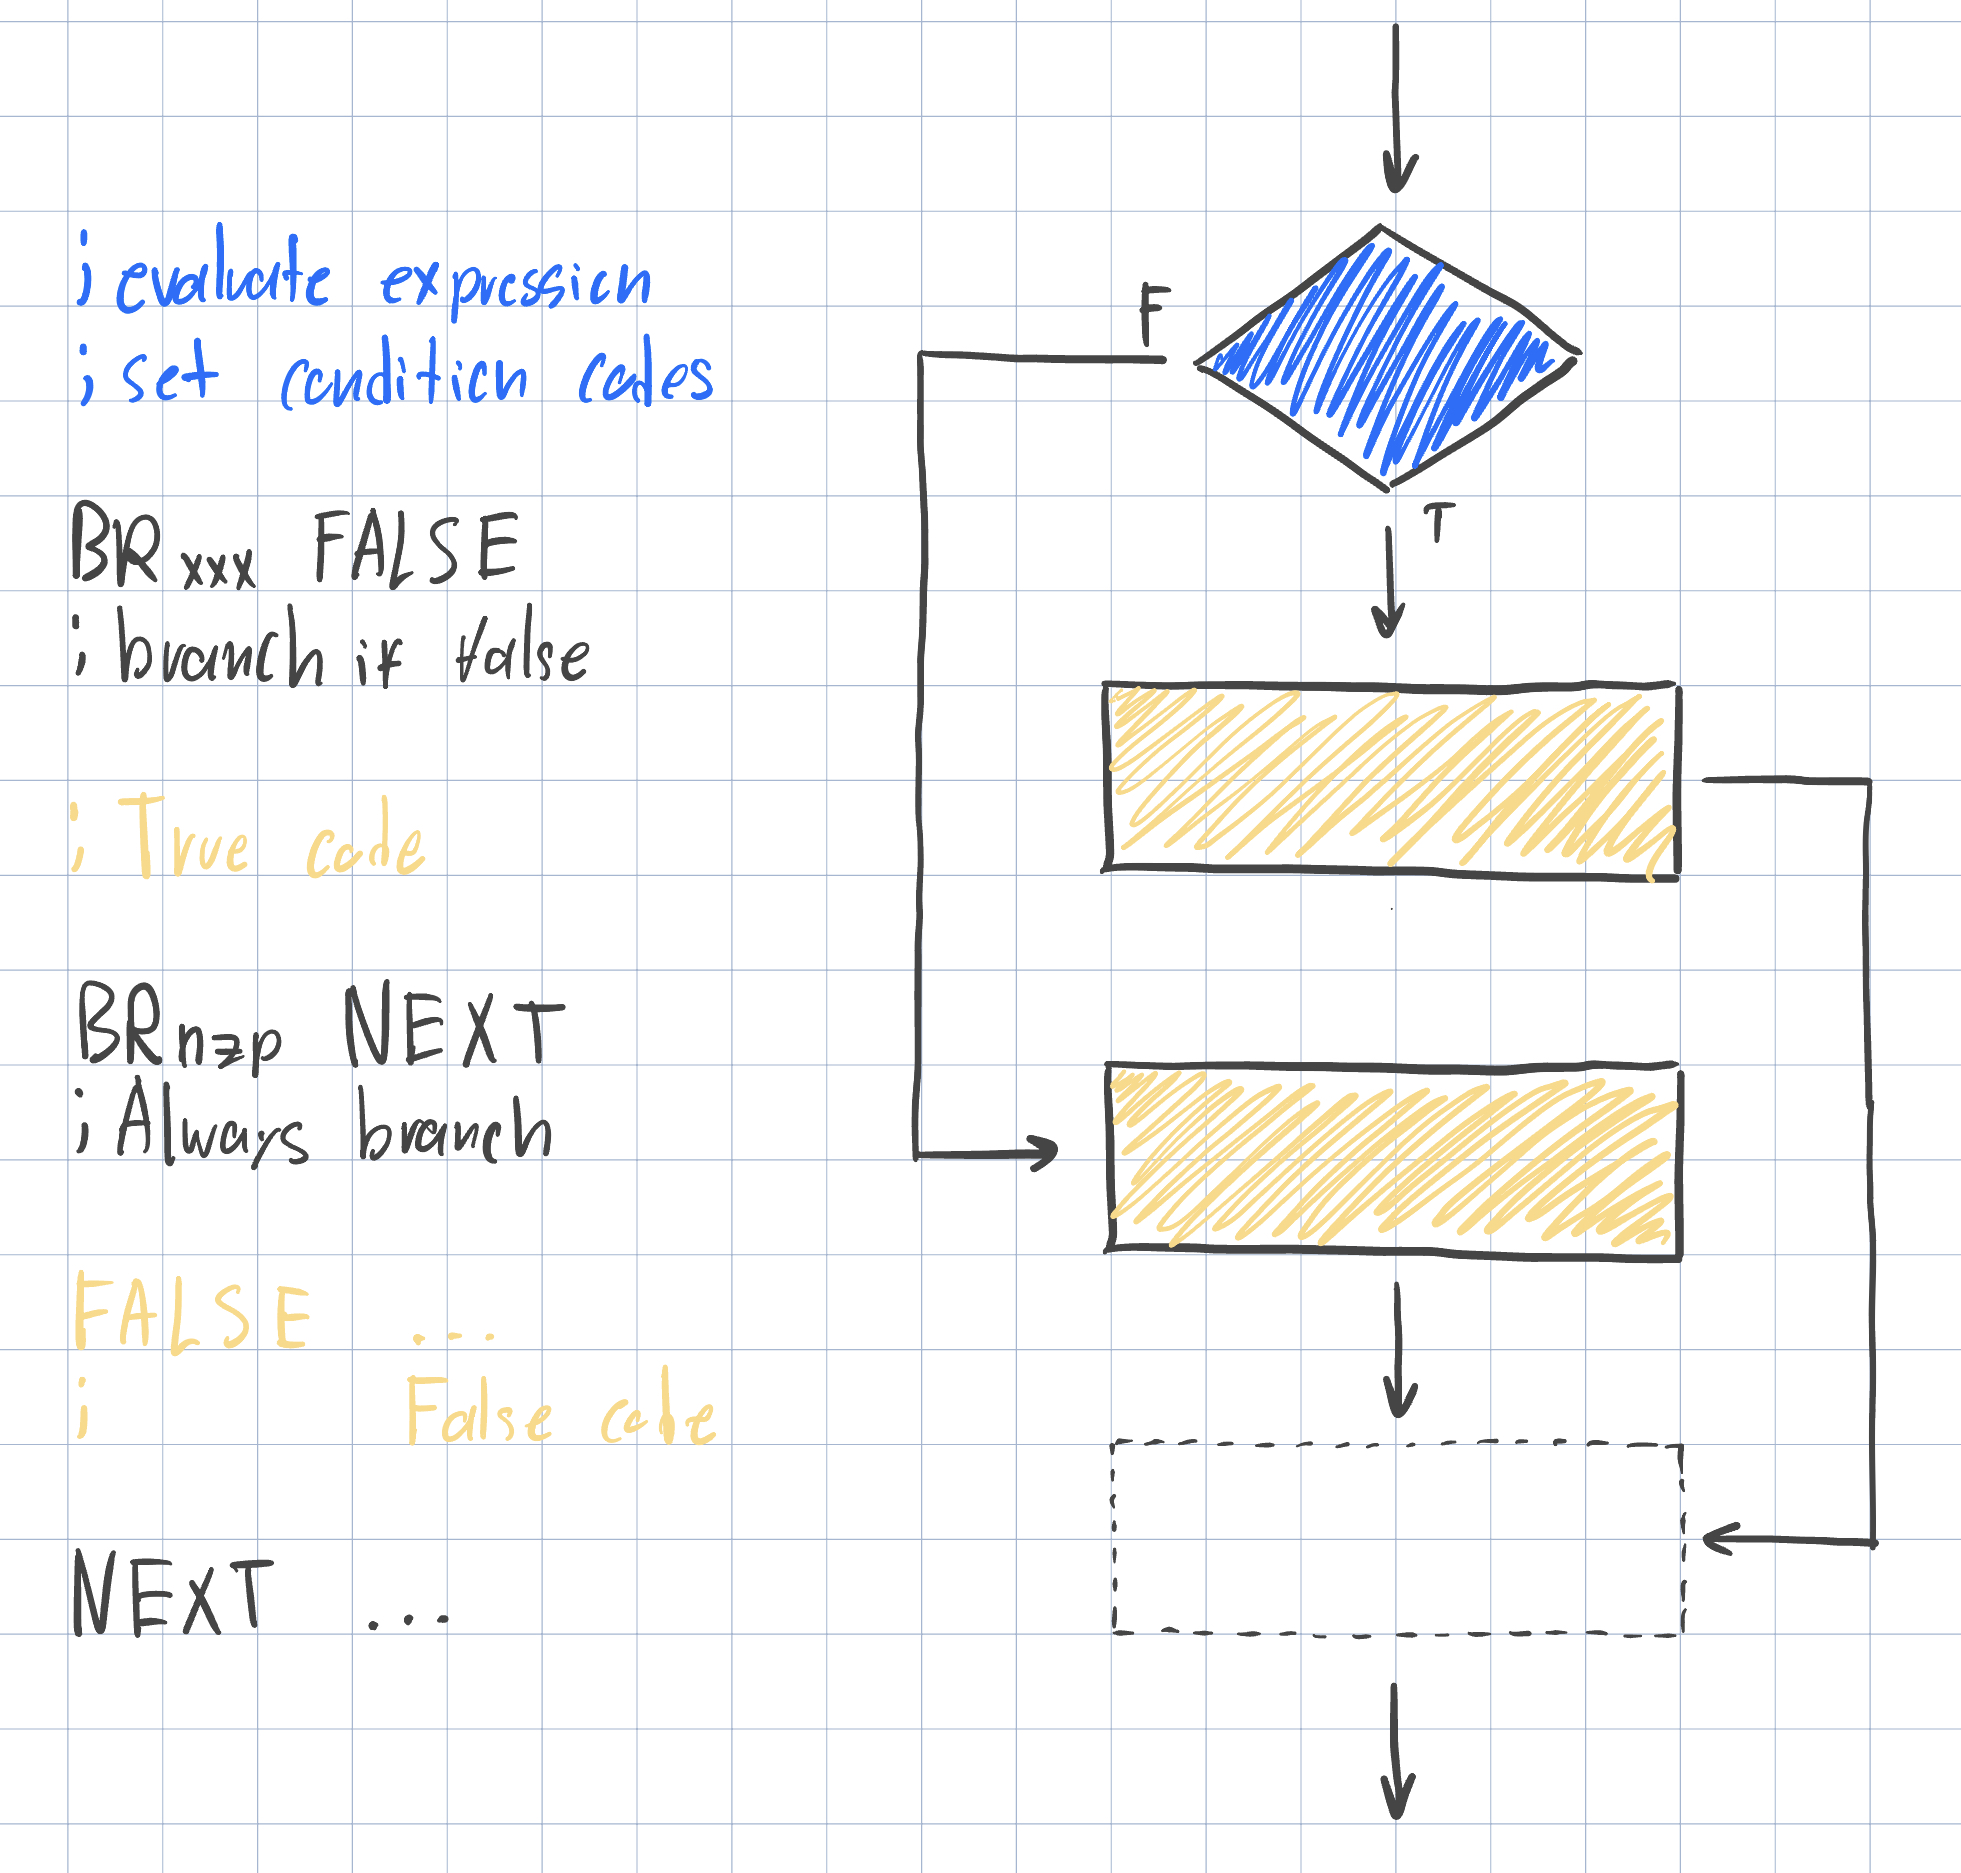 ; evaluate expression
; set condition codes
F
BRxxx FALSE
; branch if false
T
; True code
BRnzp NEXT
; Always branch
FALSE ...
; False code
NEXT ...